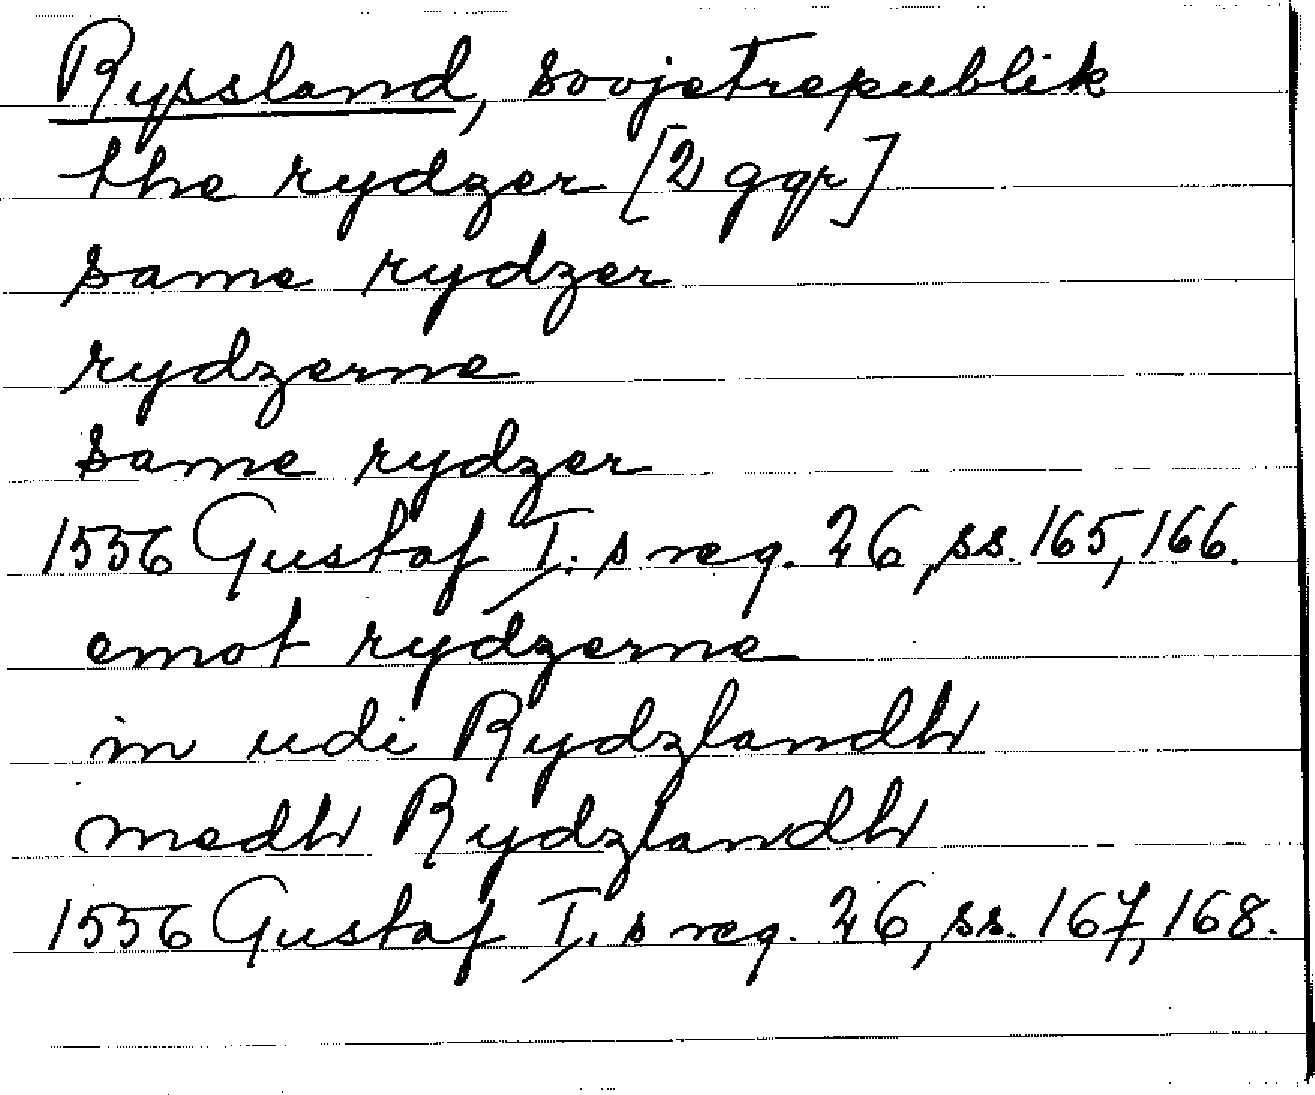 Ryssland, sovjetrepublik
the rydzer [2 ggr]
same rydzer
rydzerne
same rydzer
1556 Gustaf I:s reg. 26, ss. 165, 166.
emot rydzerne
in udi Rydzlandh
medh Rydzlandh
1556 Gustaf I:s reg. 26, ss. 167, 168.